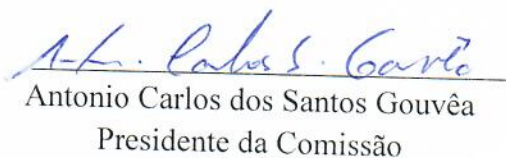 Antonio Carlos dos Santos Gouvêa
Presidente da Comissão